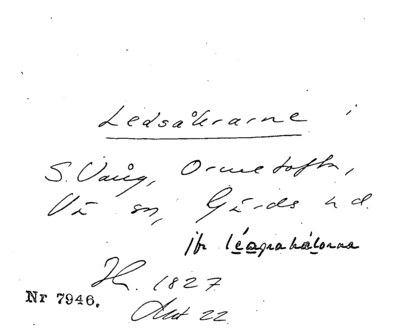 Ledsåkrarne i
S. Vång, Ormetofta,
Vä sn, Gärds hd.
jfr
H. 1827
Nr 7946. Akt 22